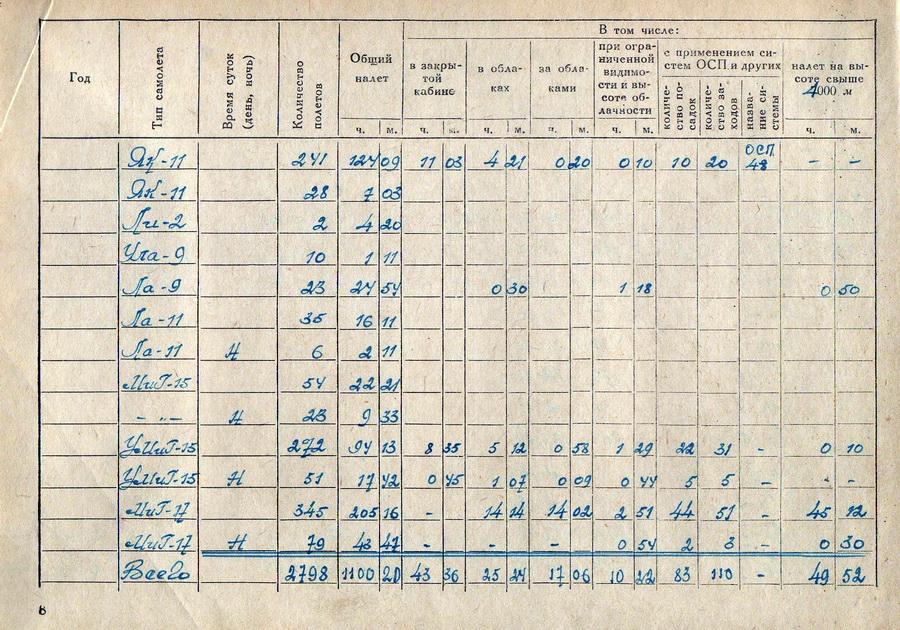 В том числе:
Год | Тип самолета | Время суток (день, ночь) | Количество полетов | Общий налет | в закрытой кабине | в облаках | за облаками | при ограниченной видимости и высоте облачности | с применением систем ОСП и других | налет на высоте свыше 4000 м
количество посадок | количество заходов | название системы
ч. | м. | ч. | м. | ч. | м. | ч. | м. | ч. | м. | ч. | м.
Як-11 241 124 09 11 03 4 21 0 20 0 10 10 20 ОСП 48 - -
Як-11 28 7 03
Ли-2 2 4 20
Ула-9 10 1 11
Ла-9 23 24 54 0 30 1 18 0 50
Ла-11 35 16 11
Ла-11 Н 6 2 11
МиГ-15 54 22 21
- " - Н 23 9 33
УМиГ-15 272 94 13 8 35 5 12 0 58 1 29 22 31 - 0 10
УМиГ-15 Н 51 17 42 0 45 1 07 0 09 0 44 5 5 - - -
МиГ-17 345 205 16 - 14 14 14 02 2 51 44 51 - 45 12
МиГ-17 Н 79 43 47 - - - 0 54 2 3 - 0 30
Всего 2798 1100 20 43 36 25 24 17 06 10 22 83 110 - 49 52
8